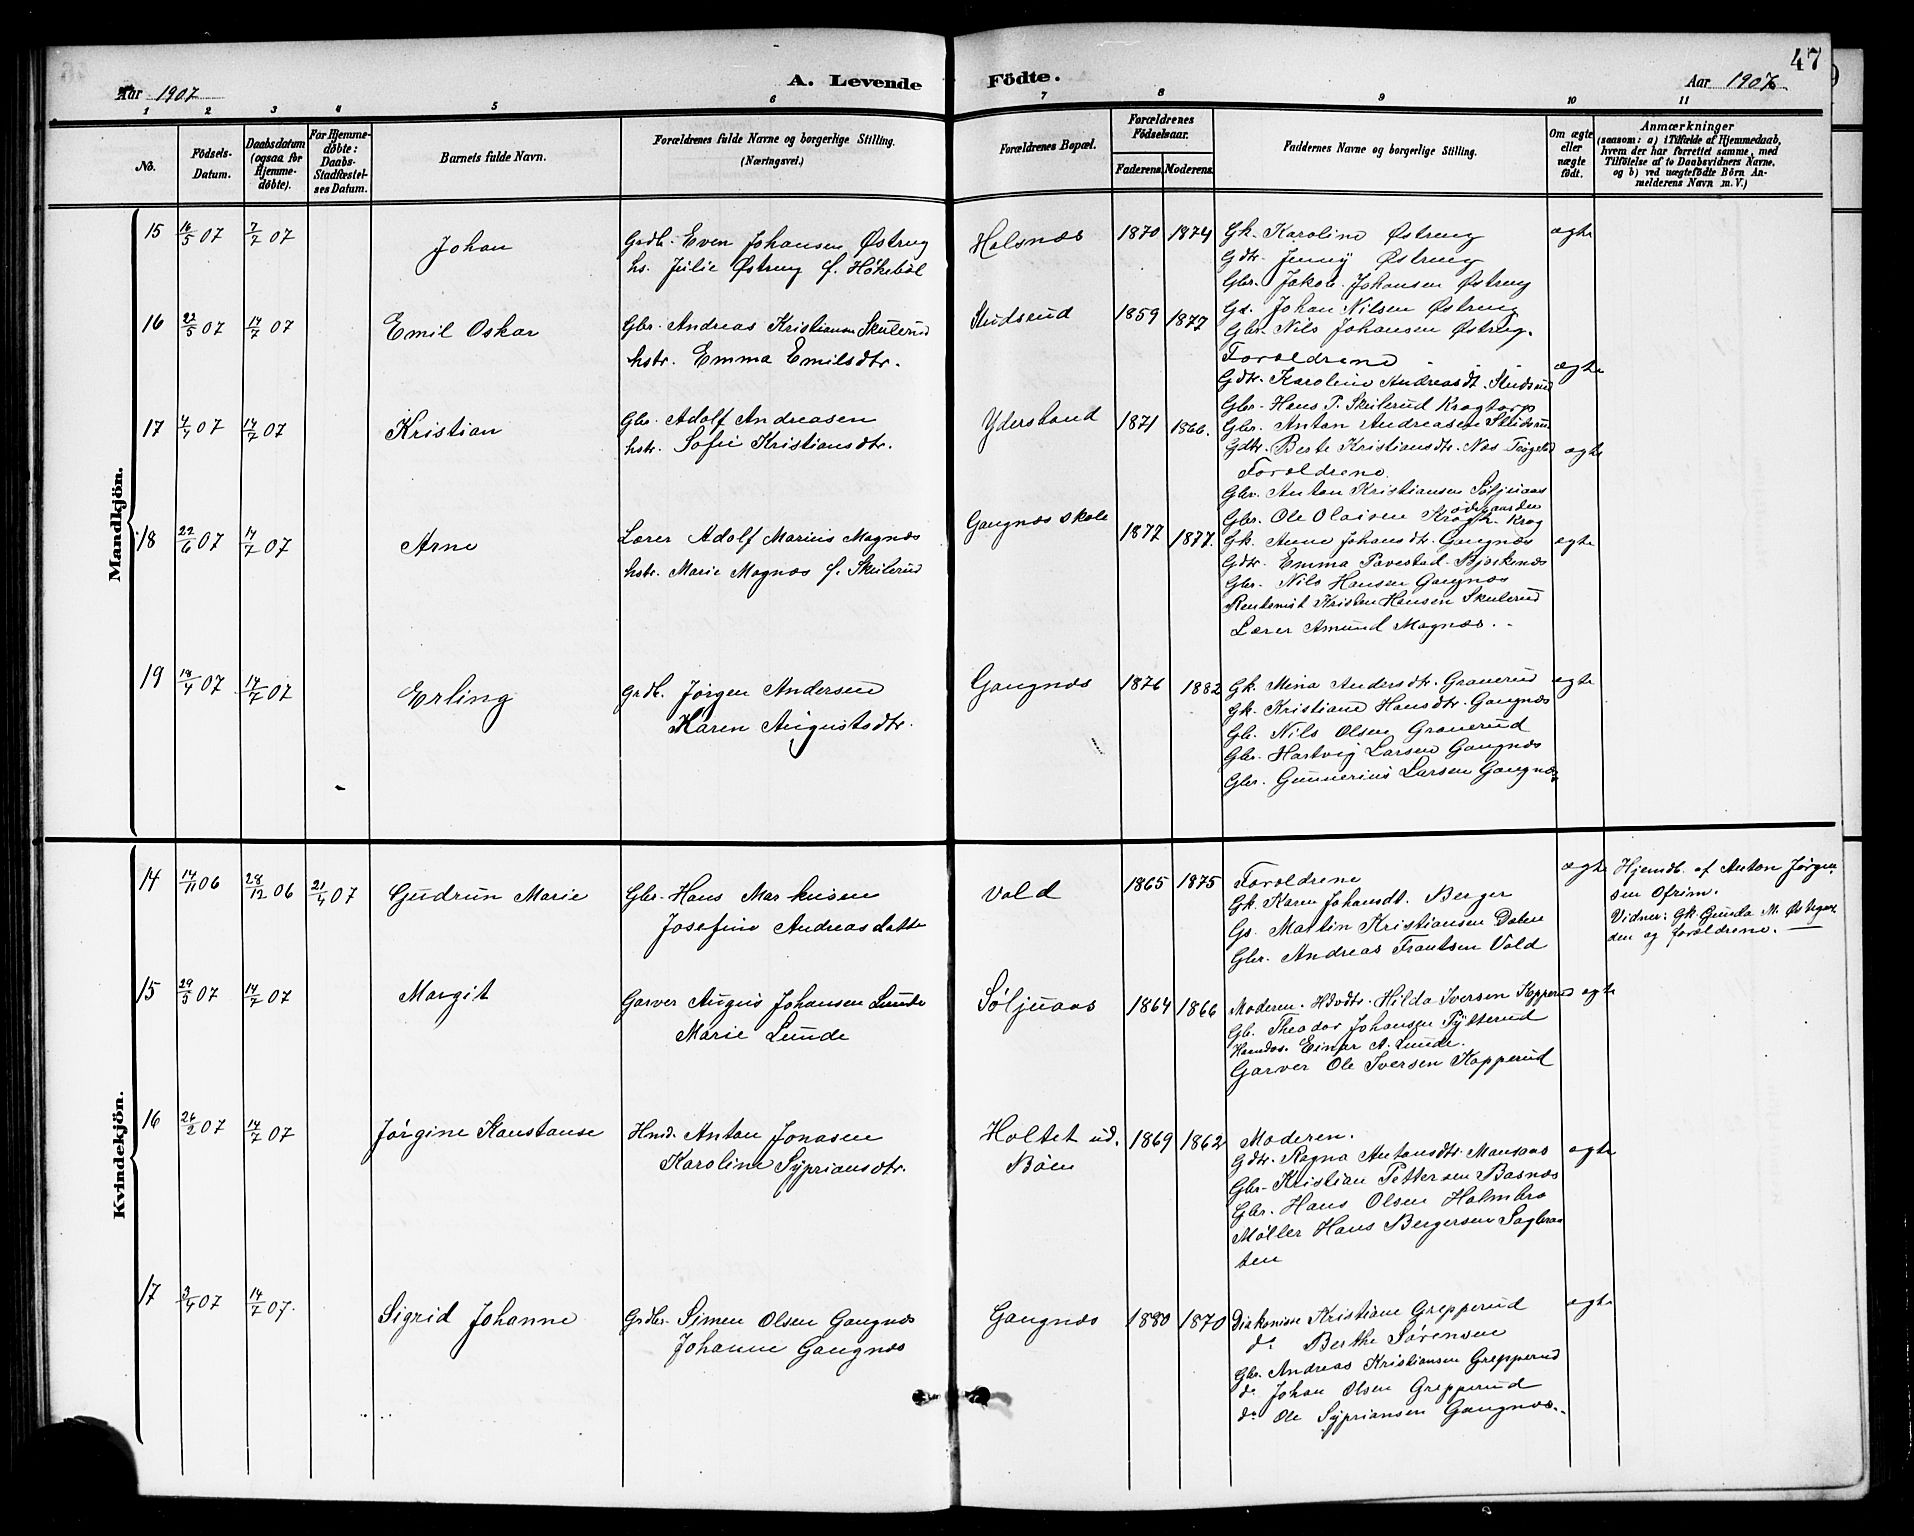 47
Aar 1907
A. Levende Födte.
Aar 1907
1 2 3 4 5 6 7 8 9 10 11
No.
Födsels-Datum.
Daabsdatum (ogsaa for Hjemmedöbte).
For Hjemmedöbte: Daabs-Stadfæstelses Datum.
Barnets fulde Navn.
Forældrenes fulde Navne og borgerlige Stilling.
(Næringsvei.)
Forældrenes Bopæl.
Forældrenes Födselsaar.
Faderens. Moderens.
Faddernes Navne og borgerlige Stilling.
Om ægte eller uægte födt.
Anmærkninger
(saasom: a) i Tilfælde af Hjemmedaab, hvem der har forrettet samme, med Tilföielse af to Daabsvidners Navne, og b) ved uægtefödte Börn Anmelderens Navn m. V.)
Mandkjön.
15 16/5 07 7/7 07 Johan
Grdb. Even Johansen Østreng
hs. Julie Østreng f. Høkeböl
Holsnæs 1870 1874
Gk. Karoline Østreng
Gdtr. Jenny Østreng
Gbr. Jakob Johansen Østreng
Gs. Johan Nilsen Østreng
Gbr. Nils Johansen Østreng.
ægte
16 22/5 07 14/7 07 Emil Oskar
Gbr. Andreas Kristiansen Skulerud
hstr. Emma Emilsdtr.
Studsrud 1859 1877
Forældrene
Gdtr. Karoline Andreasdt. Studsrud
Gbr. Hans P. Skulerud Krogtorp
Gbr. Anton Andreasen
ægte
17 14/7 07 Kristian
Gbr. Adolf Andreasen
hstr. Sofie Kristiansdtr.
1871 1866.
Gdtr. Berte Kristiansdtr. Næs
Forældrene
Gbr. Anton Kristiansen Søljuaas
Gbr. Ole Olaisen
ægte
18 22/6 07 14/7 07 Arne
Lærer Adolf Marius Magnæs
hstr. Marie Magnæs f. Skulerud
Gangnæs skole 1877 1877.
Gk. Anne Johansdtr. Gangnæs
Gdtr. Emma
Gbr. Nils Hansen Gangnæs
Rentenist Kristen Hansen Skulerud
Lærer Amund Magnæs.
ægte
19 18/4 07 14/7 07 Erling
Grdb. Jørgen Andersen
Karen Augustsdtr.
Gangnæs 1876 1882
Gk. Mina Andersdtr. Granerud
Gk. Kristiane Hansdtr. Gangnæs
Gb. Nils Olsen Granerud
Gbr. Hartvig Larsen Gangnæs
Gbr. Gunnerius Larsen Gangnæs
ægte
Kvindekjön.
14 14/11 06 28/12 06 21/4 07 Gudrun Marie
Gbr. Hans Markusen
Josefine Andreasdatte
Vold 1865 1875
Forældrene
Gk. Karen Johansdt. Berger
Gs. Martin Kristiansen Dalen
Gbr. Andreas Frantsen Vold
ægte
Hjemdb. af Anton Jørgensen Ofrim.
Vidner: Gk. Gunda M.
den og forældrene.
15 29/5 07 14/7 07 Margit
Garver August Johansen Lunde
Marie Lunde
Søljuaas 1864 1866
Moderen. Hilda Iversen Kopperud
Gb. Theodor Johansen Tytterud
Einar A. Lunde.
Garver Ole Iversen Kopperud
ægte
16 26/2 07 14/7 07 Jørgine Konstanse
Hmd. Anton Jonasen
Karoline Sypriansdtr.
Holtet ud. Böen 1869 1862
Moderen.
Gdtr. Ragna Antonsdtr.
Gbr. Kristian Pettersen Basnæs
Gbr. Hans Olsen Holmbro
Møller Hans Bergersen Sagbraaten
ægte
17 3/4 07 14/7 07. Sigrid Johanne
Grdbr. Simen Olsen Gangnæs
Johanne Gangnæs
Gangnæs 1880 1870
Diakonisse Kristiane Grepperud
do Berthe Sørensen
Gbr. Andreas Kristiansen Grepperud
do Johan Olsen Grepperud
do Ole Syprianson Gangnæs.
ægte